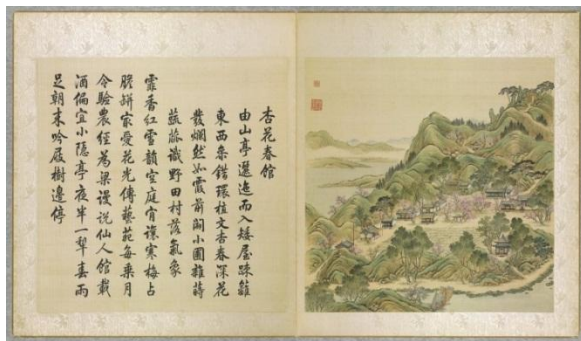 杏花春館
由山亭邐迤而入矮屋疎籬
東西參錯環植文杏春深花
發爛然如霞前闢小圃雜蒔
蔬蓏識野田村落氣象
霏香紅雪韻空庭肯讓寒梅占
膽缾最愛花光傳藝苑每乘月
令驗農經為梁謾說仙人館載
酒偏宜小隱亭夜半一犂春雨
足朝來吟屧樹邊停